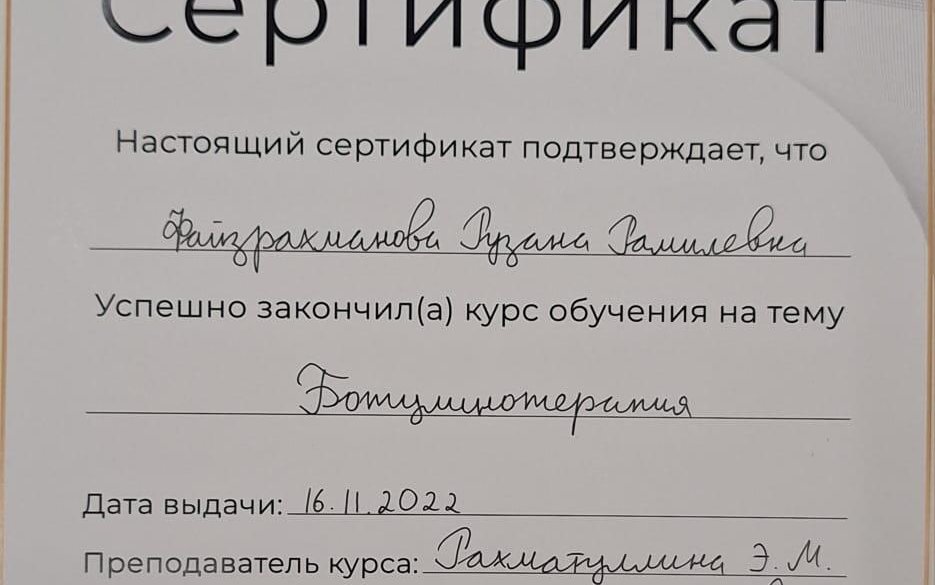 Сертификат
Настоящий сертификат подтверждает, что
Файзрахманова Рузана Рамилевна
Успешно закончил(а) курс обучения на тему
Ботулинотерапия
Дата выдачи: 16.11.2022
Преподаватель курса: Рахматуллина Э.М.